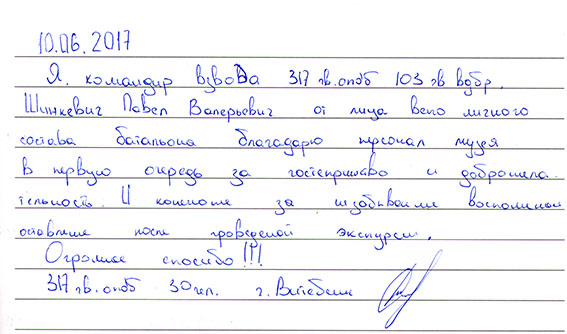 10.06.2017
Я, командир взвода 317 гв. опдб 103 гв вдбр.
Шинкевич Павел Валерьевич от лица всего личного
состава батальона благодарю персонал музея
в первую очередь за гостеприимство и доброжела-
тельность. И конечно за воспоминан
после проведеной экскурсии.
Огромное спасибо!!!
317 гв. опдб 30чел. г. Витебск